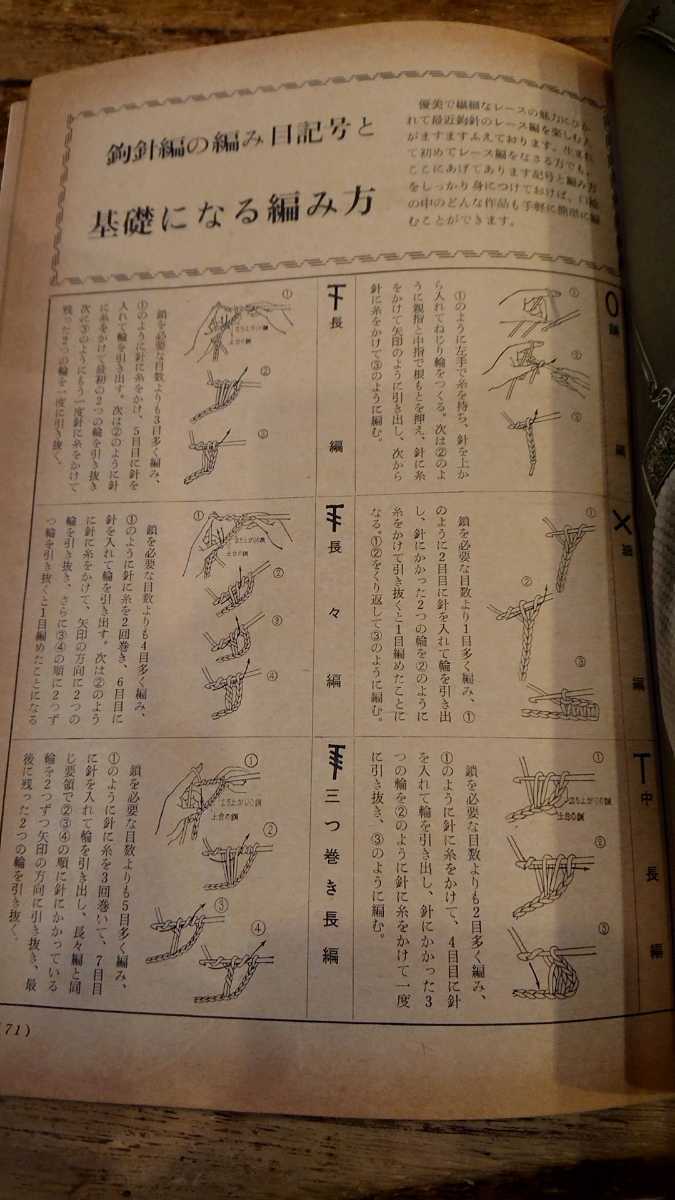 鉤針編の編み目記号と
基礎になる編み方
優美で繊細なレースの魅力にひか
れて最近鉤針のレース編を楽しむ
がますますふえております。生
て初めてレース編をなさる方でも、
ここにあげてあります記号と編み方
をしっかり身につけておけば、
の中のどんな作品も手軽に簡単に編
むことができます。
鎖編
①のように左手で糸を持ち、針を上か
ら入れてねじり輪をつくる。次は②のよ
うに親指と中指で根もとを押え、針に糸
をかけて矢印のように引き出し、次から
針に糸をかけて③のように編む。
①
②
③
細編
鎖を必要な目数より1目多く編み、①
のように2目目に針を入れて輪を引き出
し、針にかかった2つの輪を②のように
糸をかけて引き抜くと1目編めたことに
なる。①②をくり返して③のように編む。
①
②
③
中長編
鎖を必要な目数よりも2目多く編み、
①のように針に糸をかけて、4目目に針
を入れて輪を引き出し、針にかかった3
つの輪を②のように針に糸をかけて一度
に引き抜き、③のように編む。
①
立ち上がりの鎖
土台の鎖
②
③
長編
鎖を必要な目数よりも3目多く編み、
①のように針に糸をかけ、5目目に針を
入れて輪を引き出す。次は②のように針
に糸をかけて最初の2つの輪を引き抜き
次に③のようにもう一度針に糸をかけて
残った2つの輪を一度に引き抜く。
①
立ち上がりの鎖
土台の鎖
②
③
長々編
鎖を必要な目数よりも4目多く編み、
①のように針に糸を2回巻き、6目目に
針を入れて輪を引き出す。次は②のよう
に針に糸をかけて、矢印の方向に2つの
輪を引き抜き、さらに③④の順に2つず
つ輪を引き抜くと1目編めたことになる
①
立ち上がりの鎖
土台の鎖
②
③
④
三つ巻き長編
鎖を必要な目数よりも5目多く編み、
①のように針に糸を3回巻いて、7目目
に針を入れて輪を引き出し、長々編と同
じ要領で②③④の順に針にかかっている
輪を2つずつ矢印の方向に引き抜き、最
後に残った2つの輪を引き抜く。
①
立ち上がりの鎖
土台の鎖
②
③
④
(71)